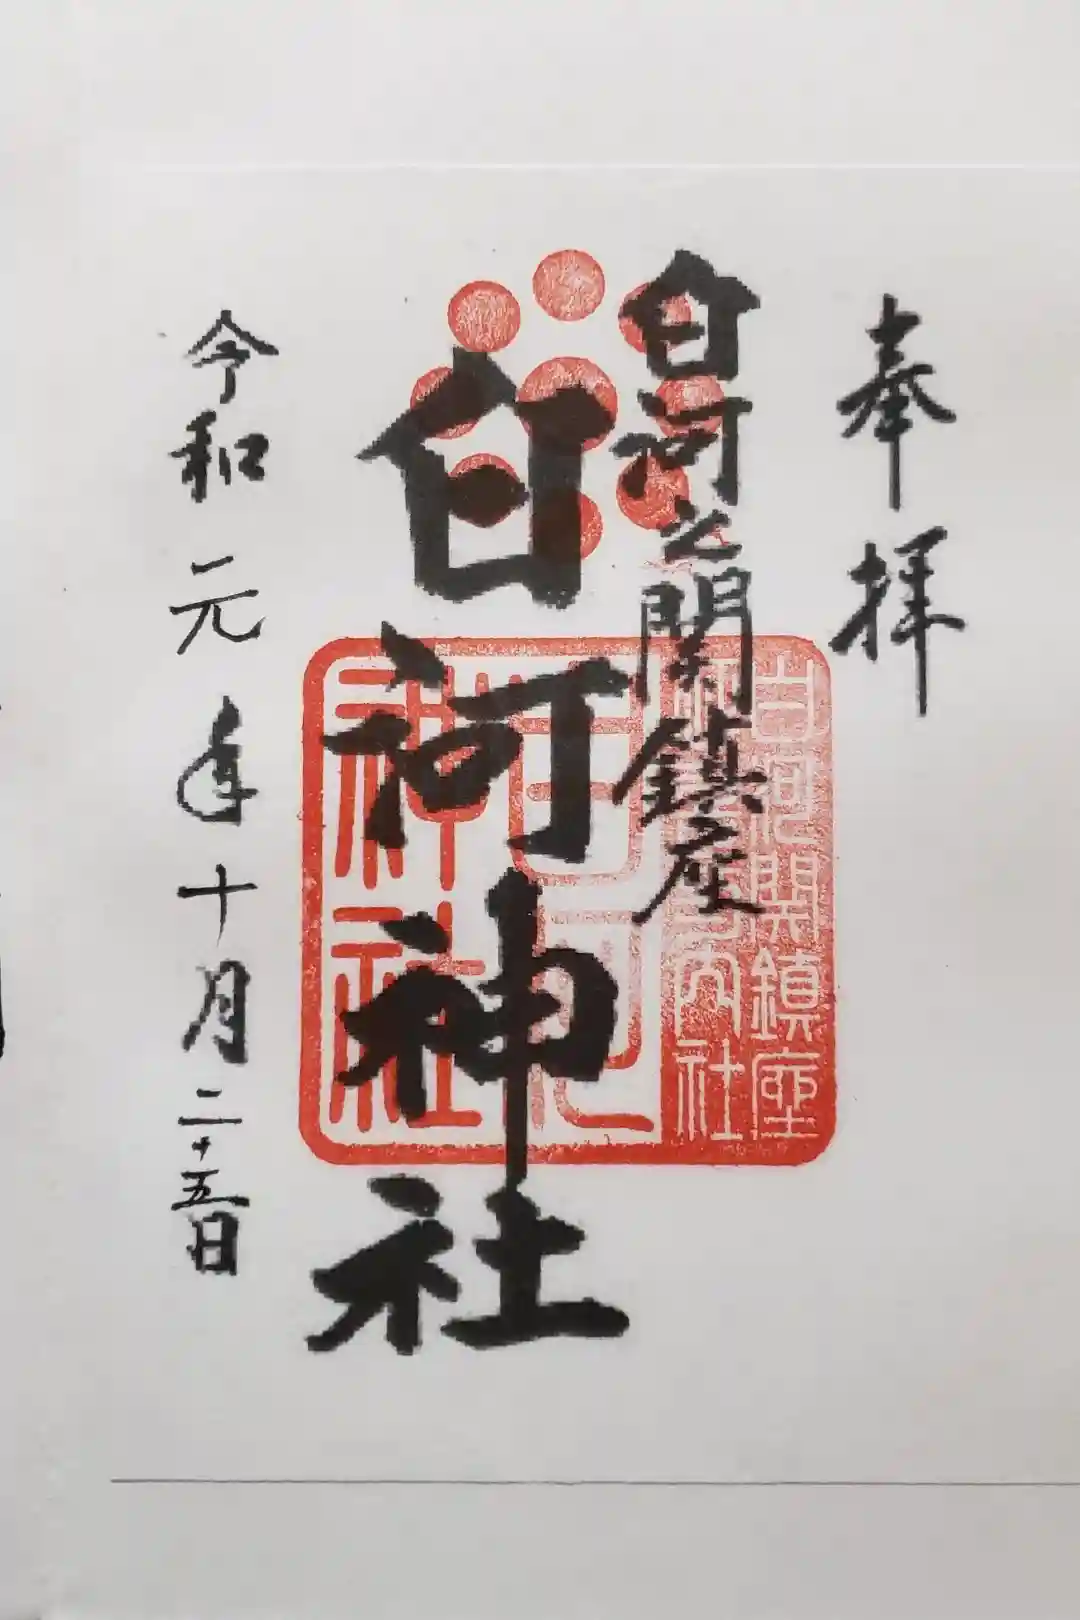 奉拝
白河之関鎮座
白河神社
令和元年十月二十五日
白河関鎮座
内社
白河
神社